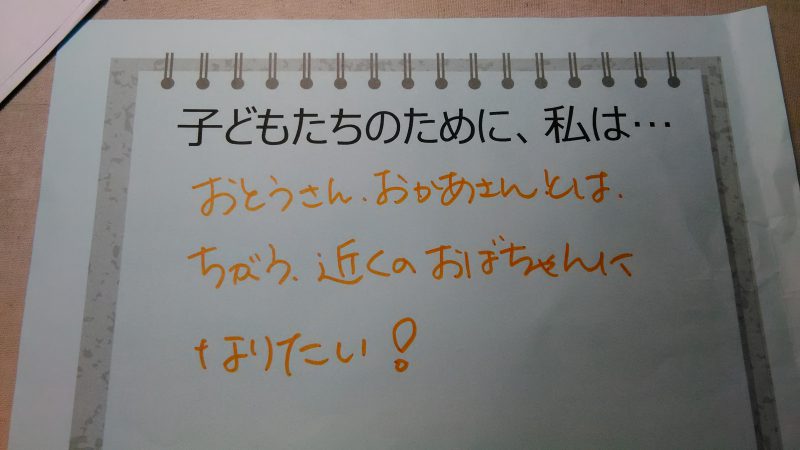 子どもたちのために、私は…
おとうさん、おかあさんとは、
ちがう、近くのおばちゃんに
なりたい!